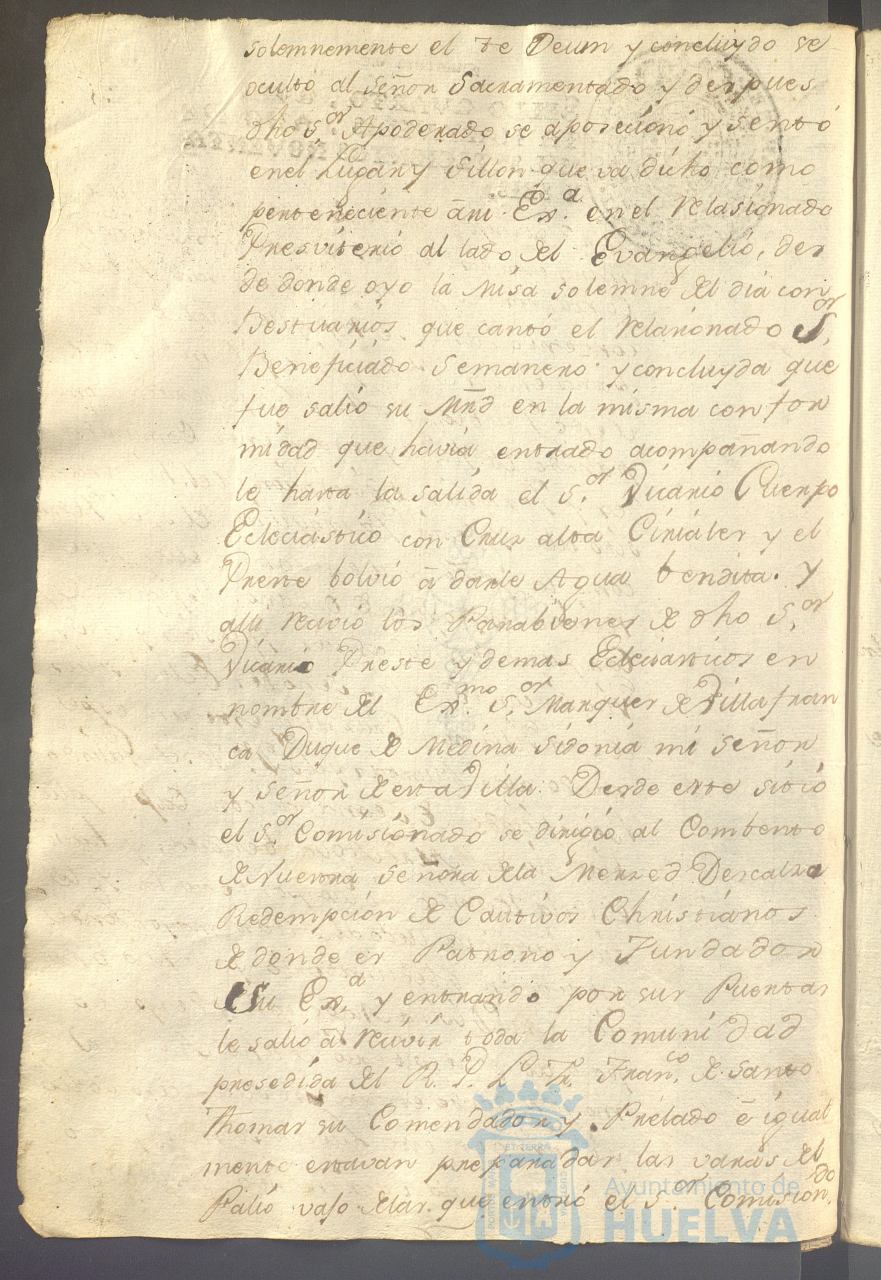 solemnemente el te Deum y concluydo se
ocultó al Señor Sacramentado y despues
dho S.or Apoderado se aposicionó y sentó
en el Lugar y Sillon que va dicho como
perteneciente á su Ex.a en el relasionado
Presviterio al lado del Evangelio, des
de donde oyo la Misa solemne del dia con
Bestuarios que cantó el relasionado S.or
Beneficiado Semanero y concluyda que
fue salio su Mrd en la misma confor
midad que havia entrado acompanando
le hasta la salida el S.or Vicario Cuerpo
Eclesiástico con Cruz alta Ciriales y el
Preste bolvió á darle Agua bendita. y
alli recivio los Parabienes de dho S.or
Vicario Preste y demas Eclesiasticos en
nombre del Ex.mo S.or Marques de Villafran
ca Duque de Medina Sidonia mi señor
y señor de esta Villa. Desde este sitio
el S.or Comisionado se dirigió al Combento
de Nuestra Señora de la Merzed Descalza
Redempcion de Cautivos Christianos
de donde es Patrono y Fundador
Su Ex.a y entrando por sus Puertas
le salió á recivir toda la Comunidad
presedida del R. P. L. Fr. Fran.co de Santo
Thomas su Comendador y Prelado é igual
mente estavan preparadas las varas del
Palio vajo del as que entró el S.or Comision.do
Ayuntamiento de
HUELVA